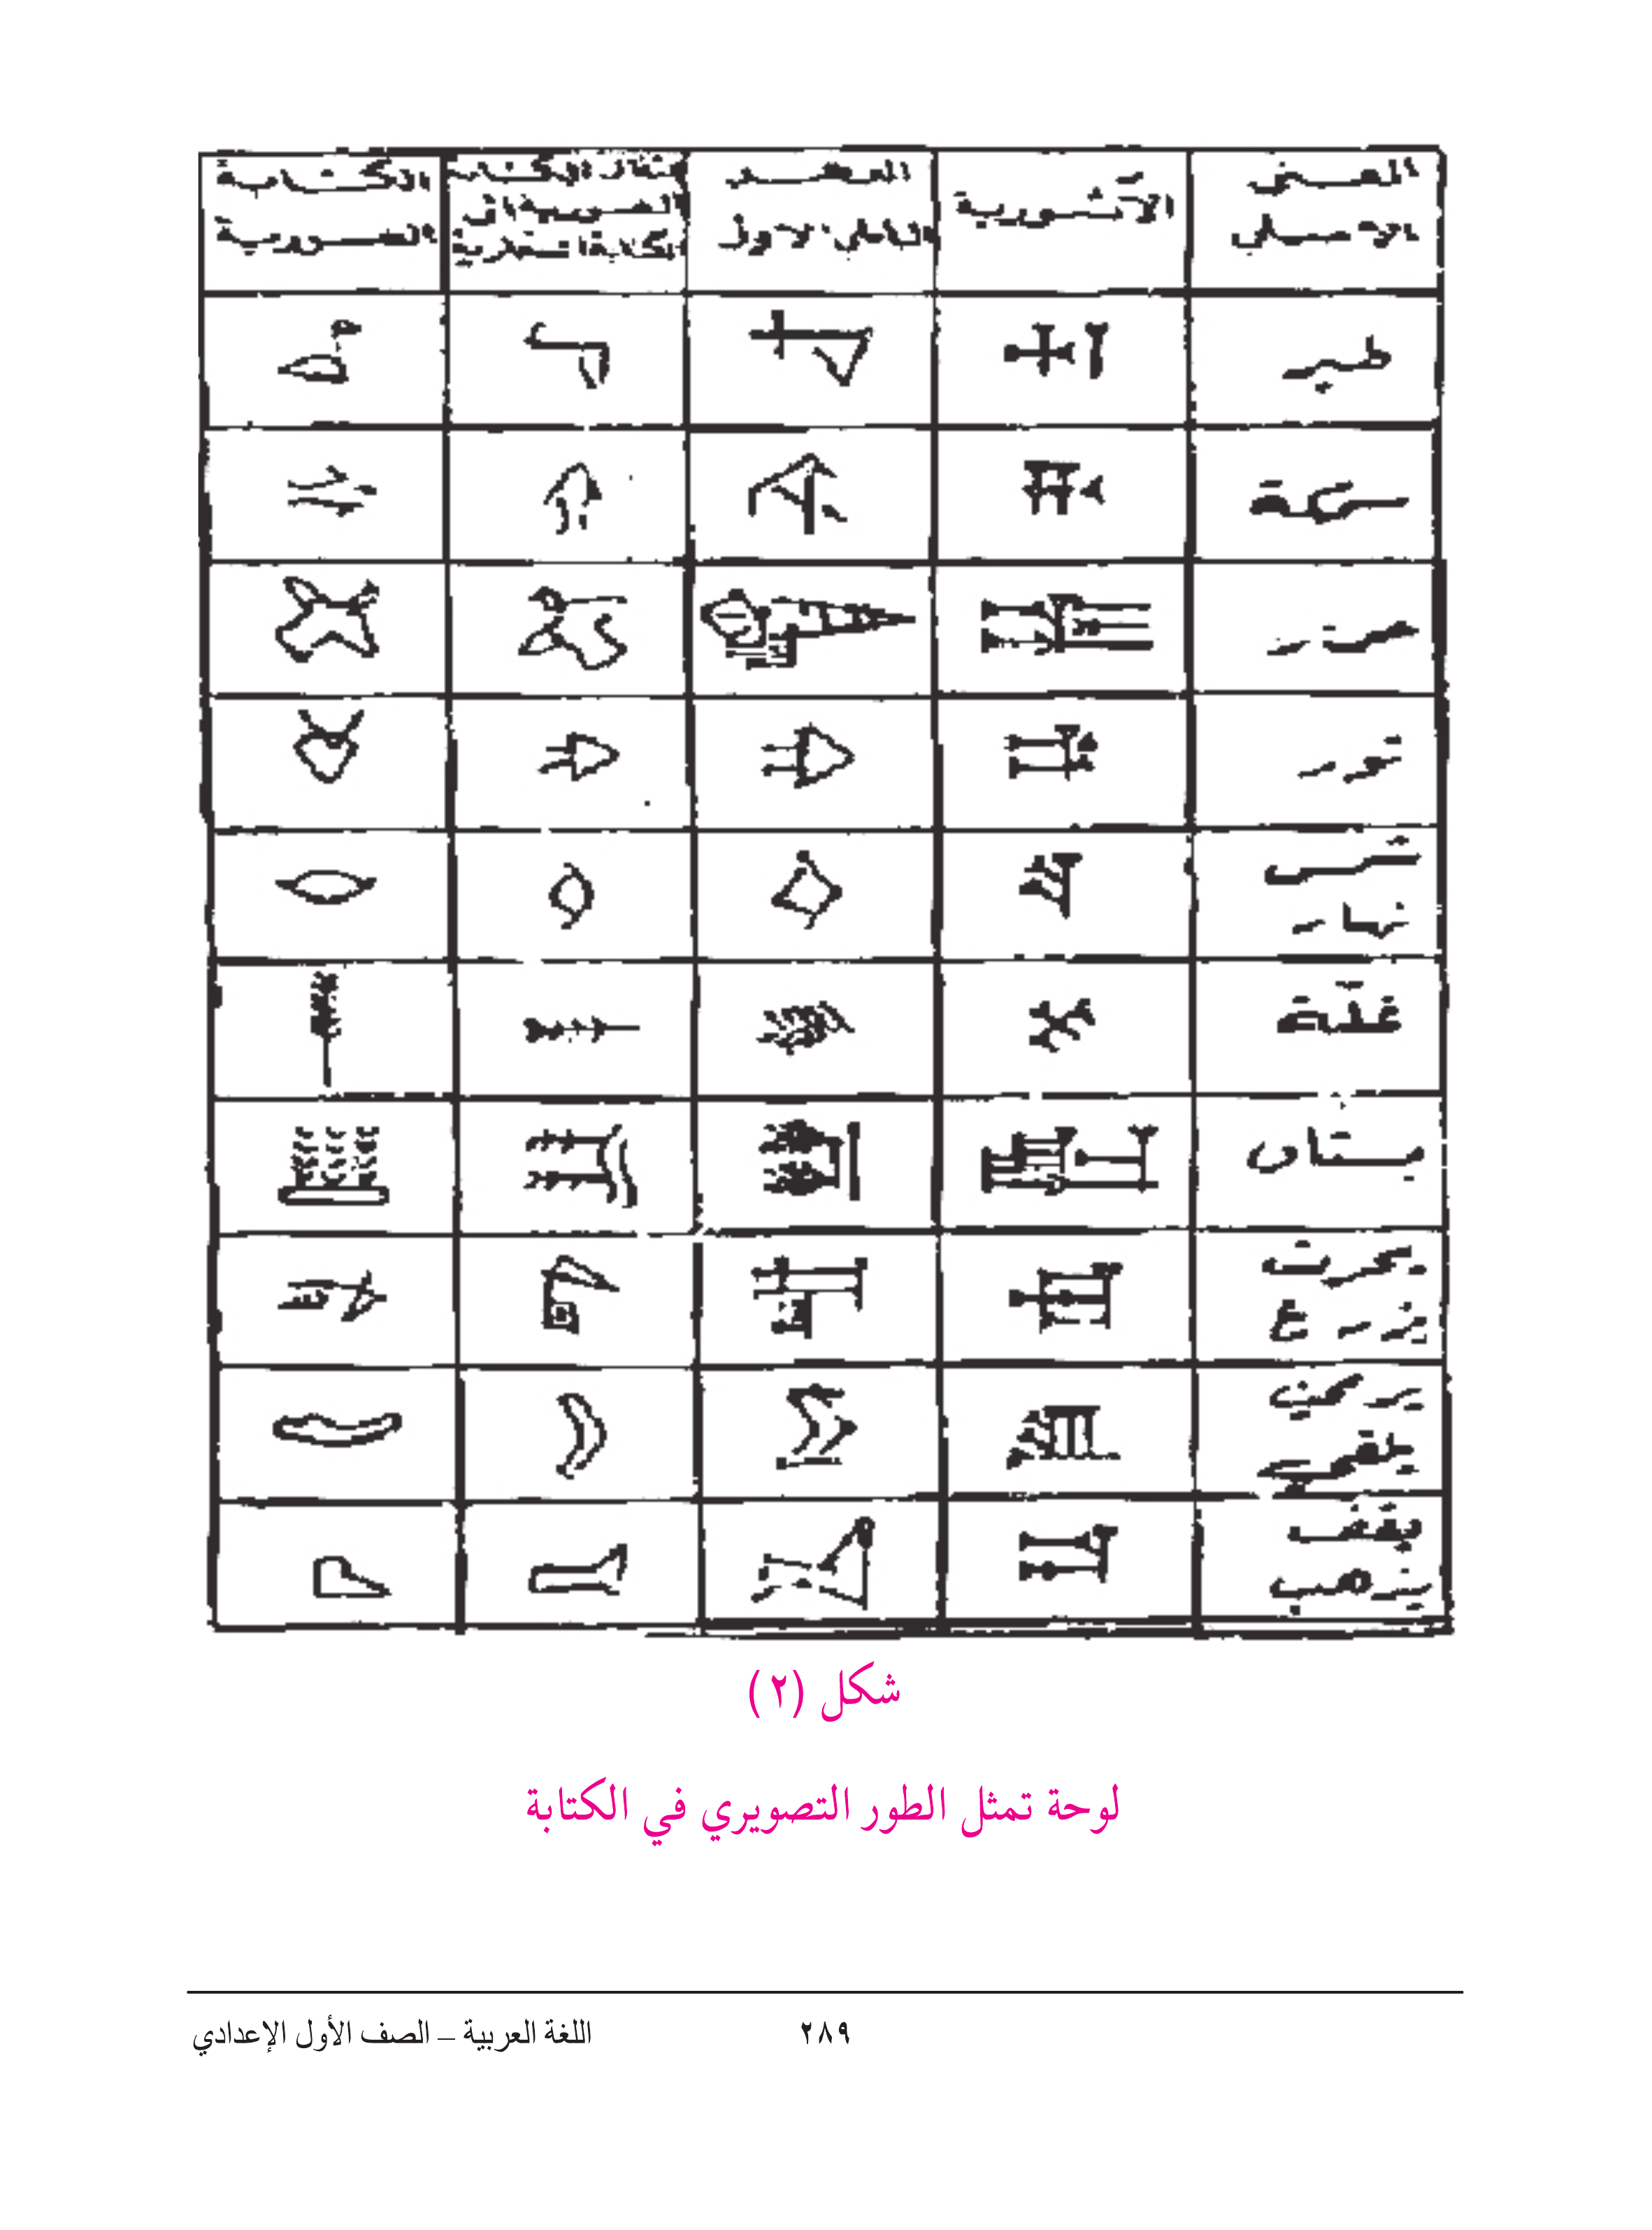 المعنى
الأصلي
الآشورية
العصر
البابلي الأول
الكتابة
الصورية
طير
سمكة
حمار
ثور
شمس
نهار
غلة
بستان
يحرث
يزرع
يقف
يذهب
شكل (٢)
لوحة تمثل الطور التصويري في الكتابة
٢٨٩
اللغة العربية – الصف الأول الإعدادي